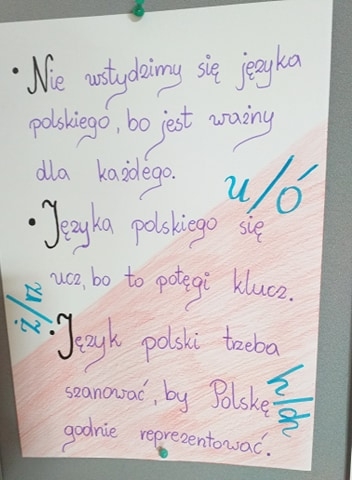 • Nie wstydzimy się języka
polskiego, bo jest ważny
dla każdego.
u/ó
• Języka polskiego się
ucz, bo to potęgi klucz.
ż/rz
• Język polski trzeba
szanować, by Polskę
h/ch
godnie reprezentować.